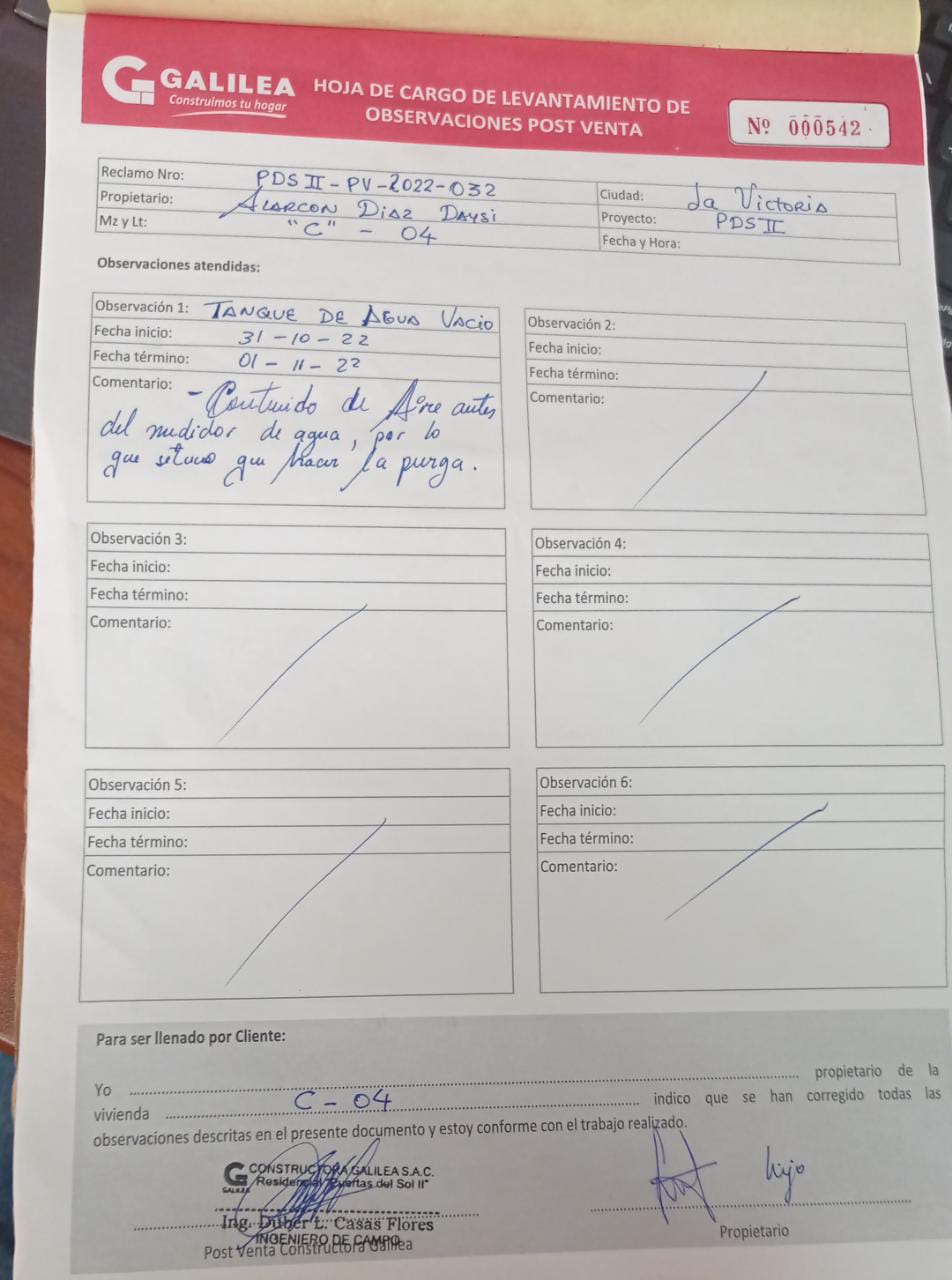 GALILEA
Construimos tu hogar
HOJA DE CARGO DE LEVANTAMIENTO DE
OBSERVACIONES POST VENTA
Nº 000542
Reclamo Nro: PDS II - PV - 2022 - 032
Propietario: ALARCON DIAZ DAYSI
Mz y Lt: "C" - 04
Ciudad: La Victoria
Proyecto: PDS II
Fecha y Hora:
Observaciones atendidas:
Observación 1: TANQUE DE AGUA VACIO
Fecha inicio: 31 - 10 - 22
Fecha término: 01 - 11 - 22
Comentario: - Contenido de Aire antes
del medidor de agua, por lo
que se tuvo que hacer la purga.
Observación 2:
Fecha inicio:
Fecha término:
Comentario:
Observación 3:
Fecha inicio:
Fecha término:
Comentario:
Observación 4:
Fecha inicio:
Fecha término:
Comentario:
Observación 5:
Fecha inicio:
Fecha término:
Comentario:
Observación 6:
Fecha inicio:
Fecha término:
Comentario:
Para ser llenado por Cliente:
Yo ........ propietario de la
vivienda ........ C - 04 ........ indico que se han corregido todas las
observaciones descritas en el presente documento y estoy conforme con el trabajo realizado.
CONSTRUCTORA GALILEA S.A.C.
GALILEA
Residencial "Puertas del Sol II"
Ing. Duber L. Casas Flores
INGENIERO DE CAMPO
Post Venta Constructora Galilea
hijo
Propietario